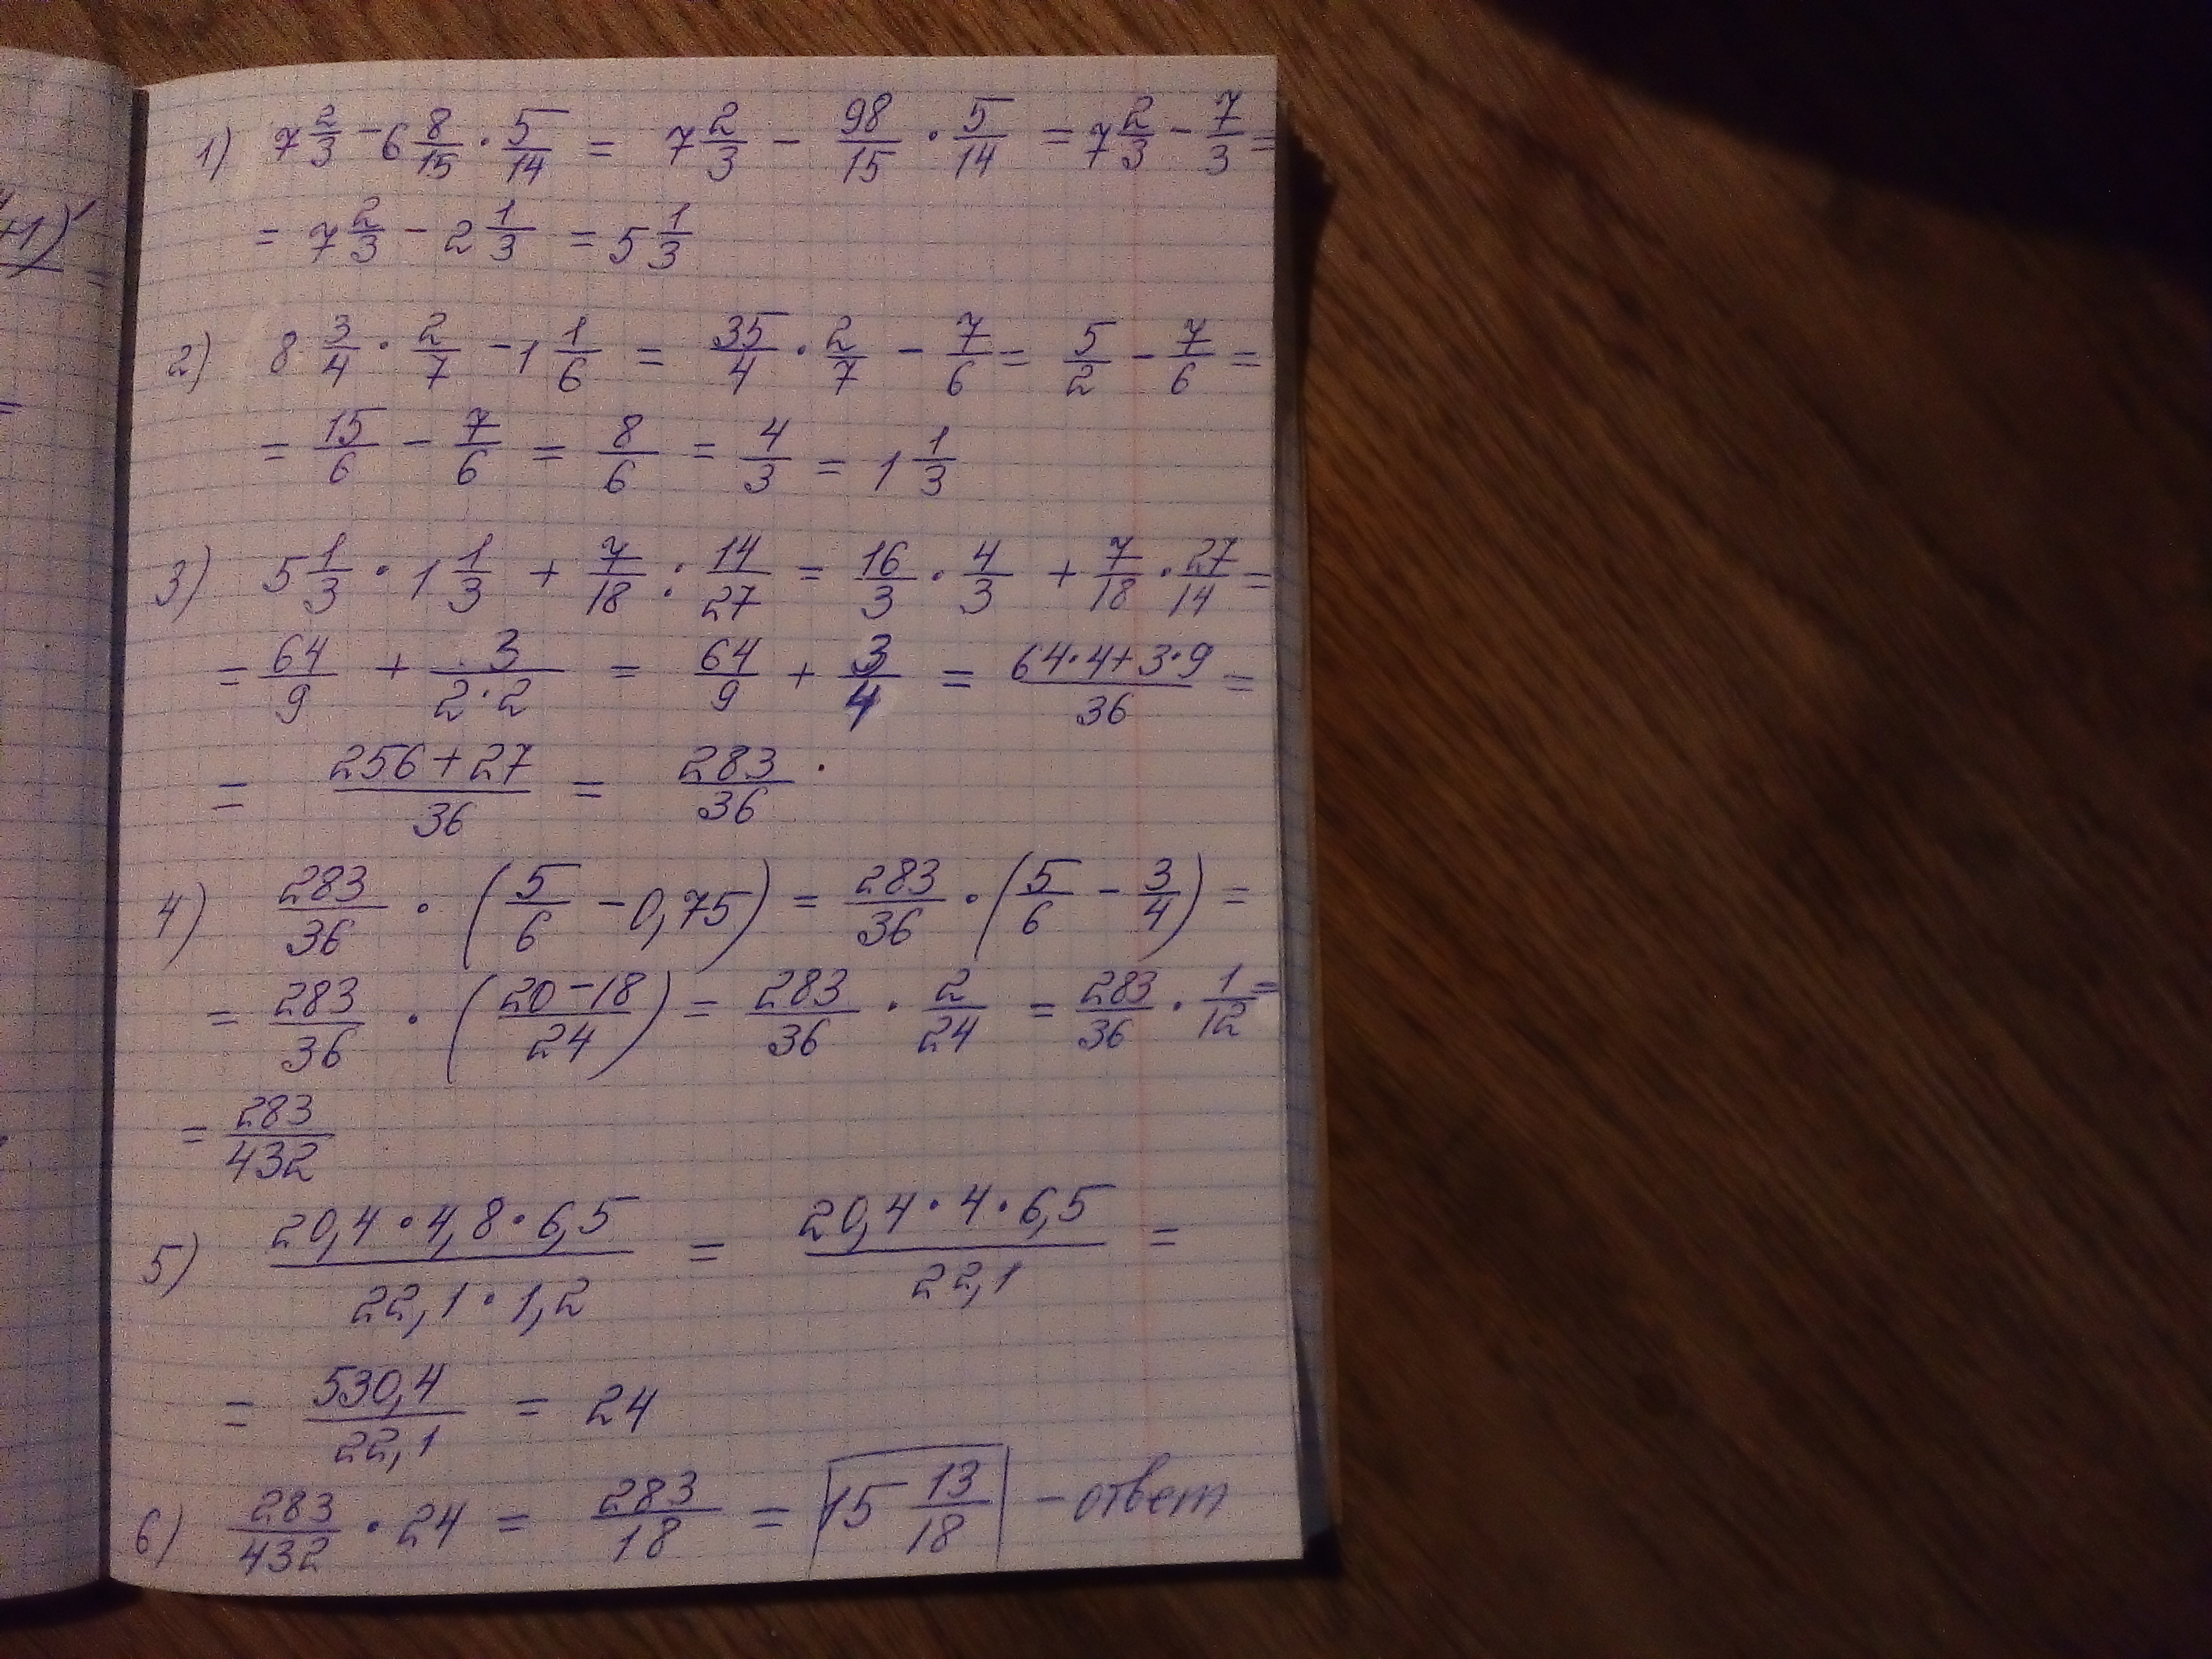 +1)
=
=
1) 7 2/3 - 6 8/15 · 5/14 = 7 2/3 - 98/15 · 5/14 = 7 2/3 - 7/3 =
= 7 2/3 - 2 1/3 = 5 1/3
2) 8 3/4 · 2/7 - 1 1/6 = 35/4 · 2/7 - 7/6 = 5/2 - 7/6 =
= 15/6 - 7/6 = 8/6 = 4/3 = 1 1/3
3) 5 1/3 · 1 1/3 + 7/18 : 14/27 = 16/3 · 4/3 + 7/18 · 27/14 =
= 64/9 + 3/(2·2) = 64/9 + 3/4 = (64·4+3·9)/36 =
= (256+27)/36 = 283/36 .
4) 283/36 · (5/6 - 0,75) = 283/36 · (5/6 - 3/4) =
= 283/36 · ((20-18)/24) = 283/36 · 2/24 = 283/36 · 1/12 =
= 283/432
5) (20,4·4,8·6,5)/(22,1·1,2) = (20,4·4·6,5)/22,1 =
= 530,4/22,1 = 24
6) 283/432 · 24 = 283/18 = 15 13/18 - ответ